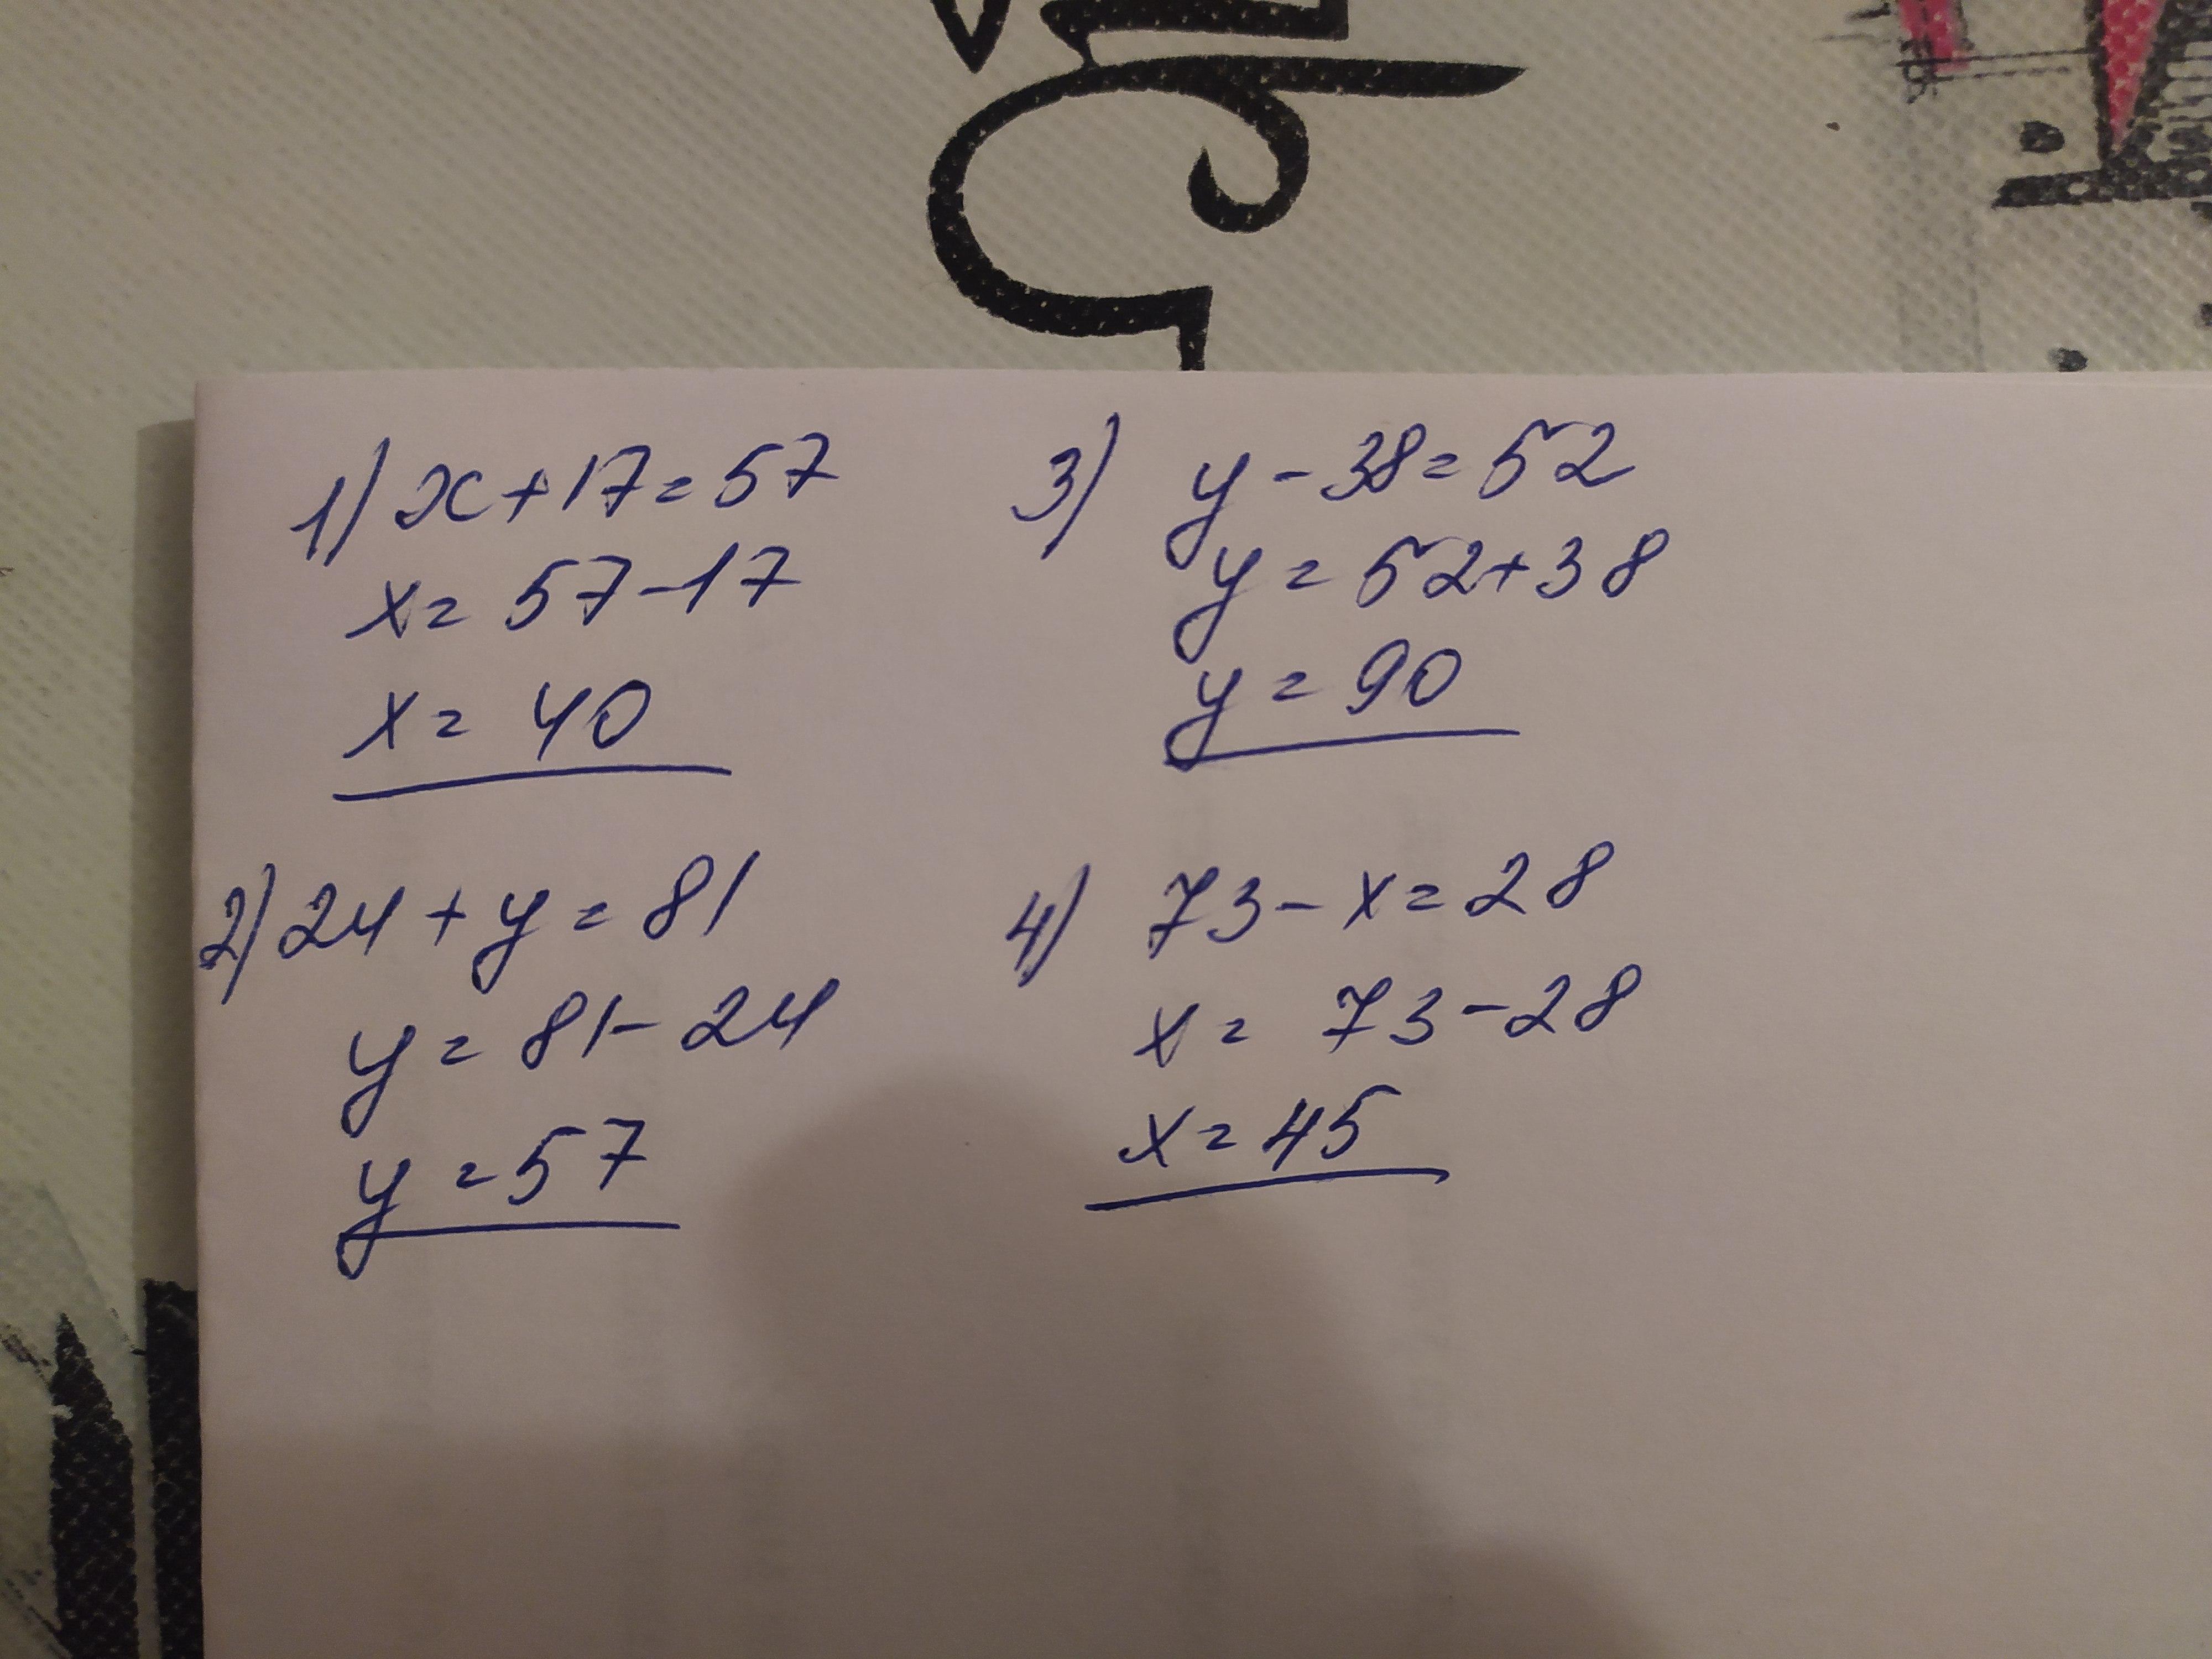 1) x + 17 = 57
x = 57 - 17
x = 40
2) 24 + y = 81
y = 81 - 24
y = 57
3) y - 38 = 52
y = 52 + 38
y = 90
4) 73 - x = 28
x = 73 - 28
x = 45